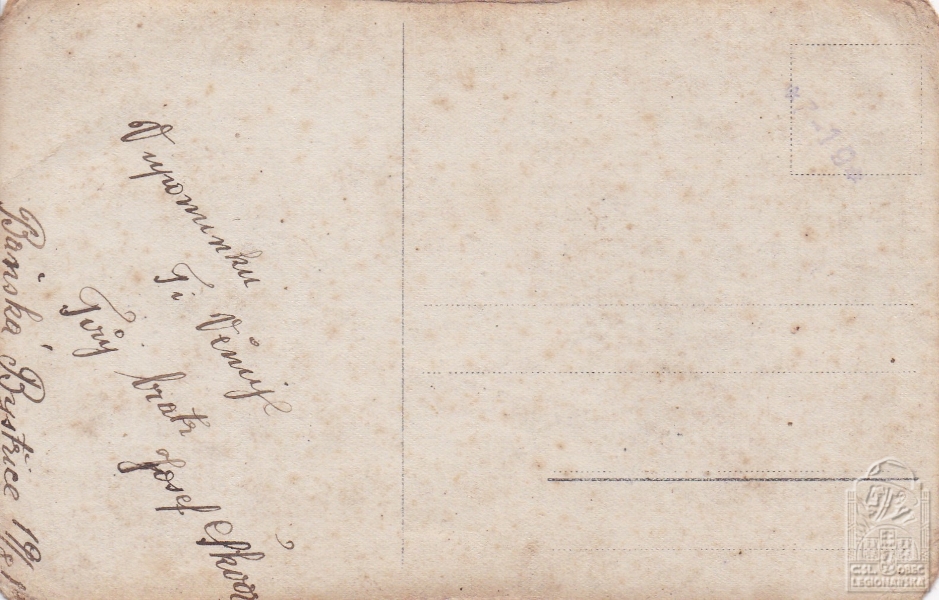 Vupomínku
Ti Věnuje
Tvůj bratr Josef Skvor
Baňská Bystrice 19/8
ČSL. OBEC
LEGIONÁŘSKÁ